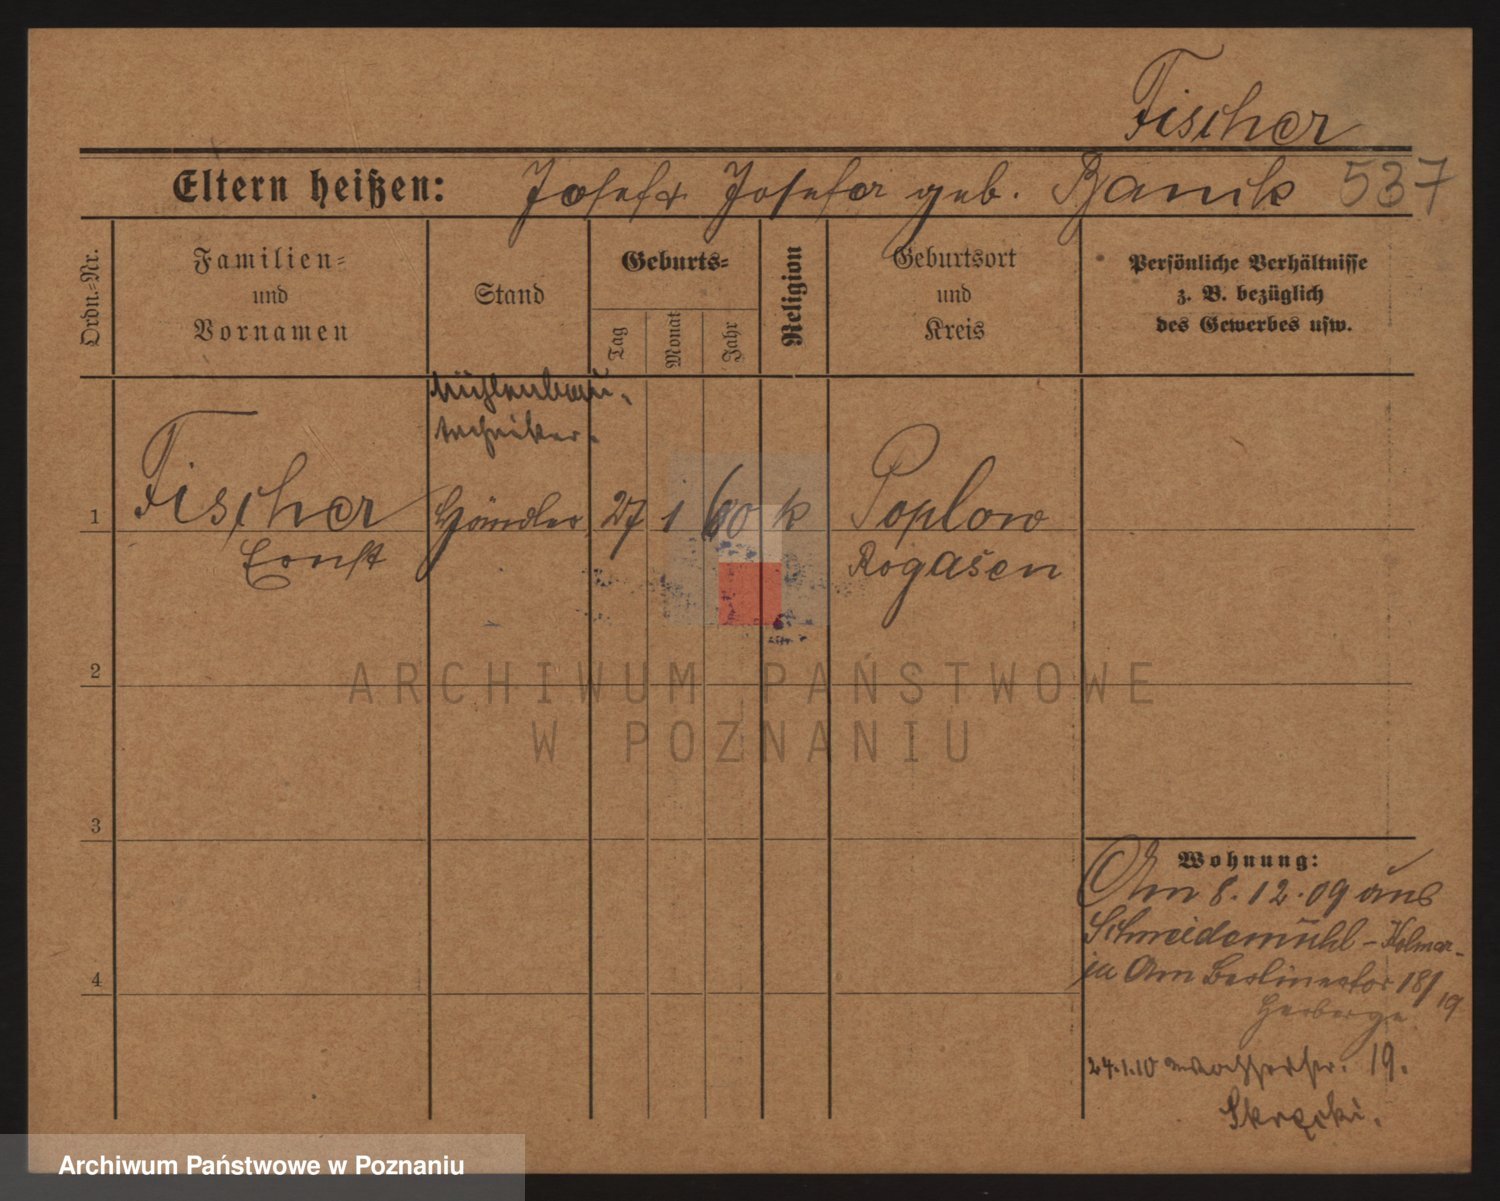 Fischer
Eltern heißen: Josef u. Josefa geb. Banik 537
Ordn.-Nr.
Familien-
und
Vornamen
Stand
Geburts-
Tag
Monat
Jahr
Religion
Geburtsort
und
Kreis
Persönliche Verhältnisse
z. B. bezüglich
des Gewerbes usw.
Mühlenbau-
techniker.
1 Fischer Händler 27 1 60 k Poplow
Ernst Rogasen
2
ARCHIWUM PAŃSTWOWE
W POZNANIU
3
4
Wohnung:
Am 8.12.09 aus
Schneidemühl - Kolmar
Am Berlinertor 18/19
Herberge
24.1.10 Wasserstr. 19.
Archiwum Państwowe w Poznaniu